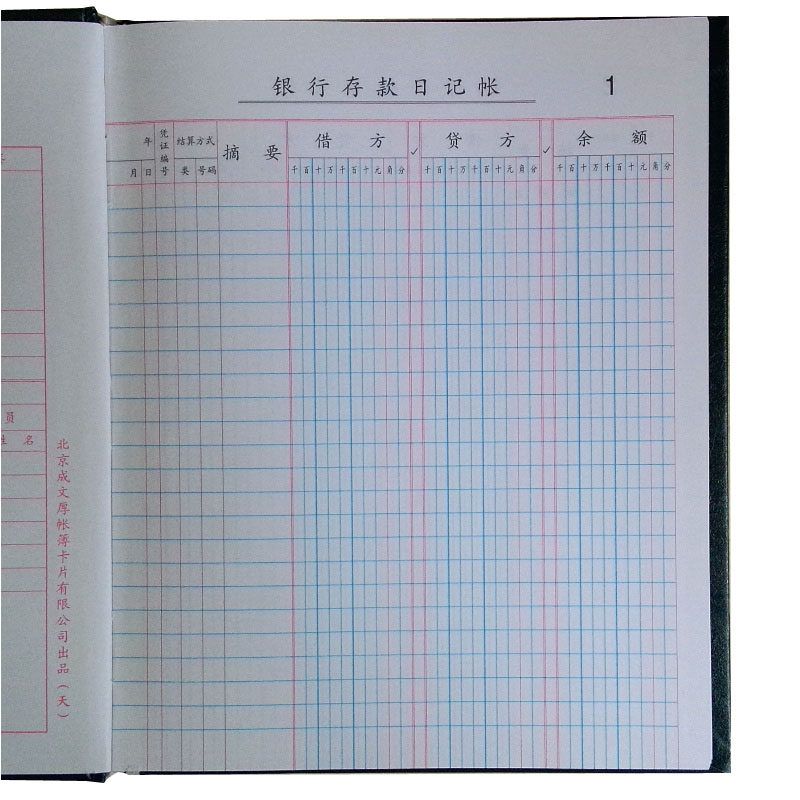 银行存款日记帐 1
年 凭证编号 结算方式 摘要 借方 ✓ 贷方 ✓ 余额
月 日 类 号码 千百十万千百十元角分 千百十万千百十元角分 千百十万千百十元角分
员
姓名
北京成文厚帐簿卡片有限公司出品(天)